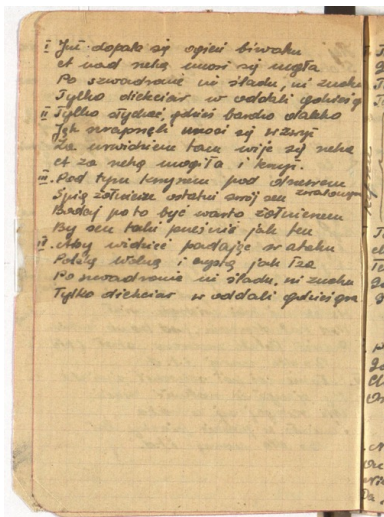 I. Już dopala się ogień biwaku
A nad rzeką unosi się mgła
Po szwadronie ni śladu, ni znaku
Tylko diekciar w oddali gdzieś g
II Tylko słychać, gdzieś bardzo daleko
Jak unosi się wzwyż
Za urwiskiem tam wije się rzeka
A za rzeką mogiła i krzyż.
III. Pod tym krzyżem pod drzewem
Śpią żołnierze ostatni swój sen zwalonym
Bodaj po to być warto żołnierzem
By sen taki prześnić jak ten
IV. Aby widzieć padając w ataku
Polskę wolną i czystą jak łza
Po szwadronie ni śladu, ni znaku
Tylko diekciar w oddali gdzieś gra